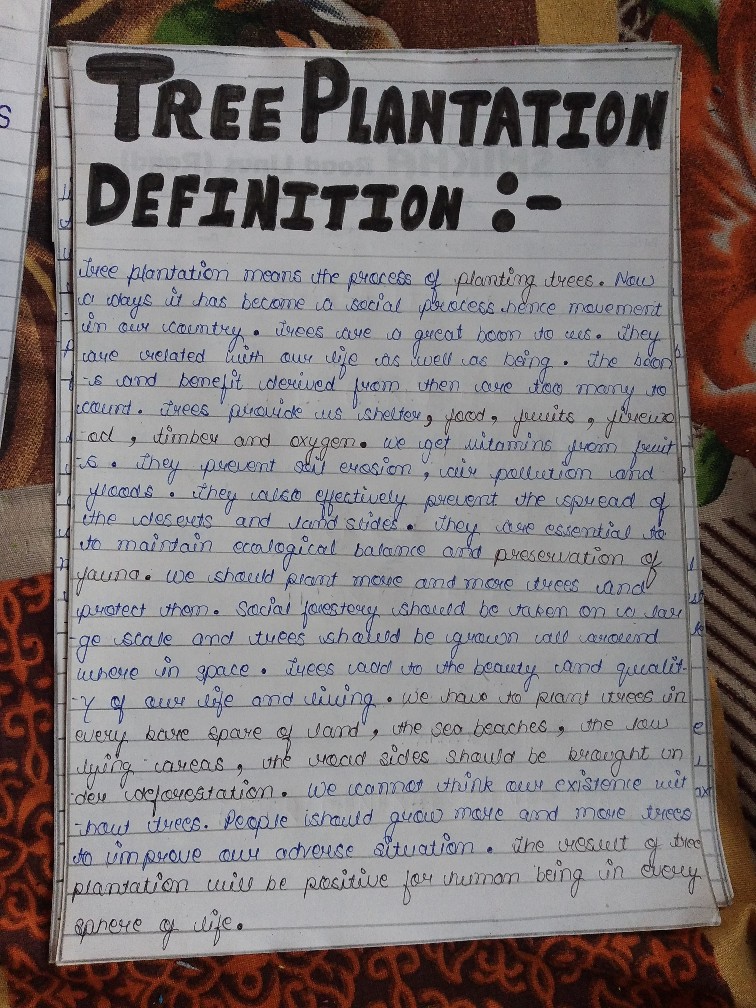 TREE PLANTATION
DEFINITION :-
Tree plantation means the process of planting trees. Now
a days it has become a social process hence movement
in our country. Trees are a great boon to us. They
are related with our life as well as being. The boon
-s and benefit derived from then are too many to
count. Trees provide us shelter, food, fruits, firewo
-od, timber and oxygen. We get vitamins from fruit
-s. They prevent soil erosion, air pollution and
floods. They also effectively prevent the spread of
the deserts and land slides. They are essential to
to maintain ecological balance and preservation of
fauna. We should plant more and more trees and
protect them. Social forestery should be taken on a lar
-ge scale and trees should be grown all around
where in space. Trees add to the beauty and qualit-
-y of our life and living. We have to plant trees in
every bare spare of land, the sea beaches, the low
lying areas, the road sides should be brought un
der deforestation. We cannot think our existence wit
-hout trees. People should grow more and more trees
to improve our adverse situation. The result of tree
plantation will be positive for human being in every
sphere of life.